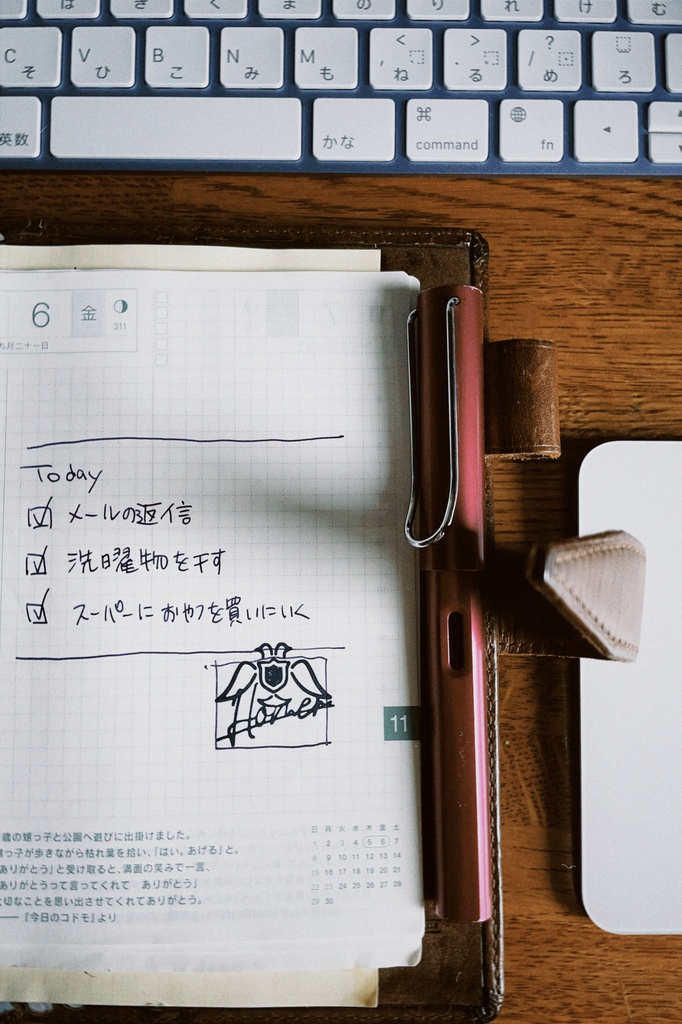 さ く ま の り れ け む
C そ V ひ B こ N み M も < , ね > . る ? / め ろ
英数 かな ⌘ command fn
6 金
311
九月二十一日
Today
☑ メールの返信
☑ 洗曜物を干す
☑ スーパーにおやつを買いにいく
Homer
11
歳の甥っ子と公園へ遊びに出掛けました。
っ子が歩きながら枯れ葉を拾い、「はい。あげる」と。
ありがとう」と受け取ると、満面の笑みで一言、
ありがとうって言ってくれて ありがとう」
切なことを思い出させてくれてありがとう。
──『今日のコドモ』より
日 月 火 水 木 金 土
1 2 3 4 5 6 7
8 9 10 11 12 13 14
15 16 17 18 19 20 21
22 23 24 25 26 27 28
29 30